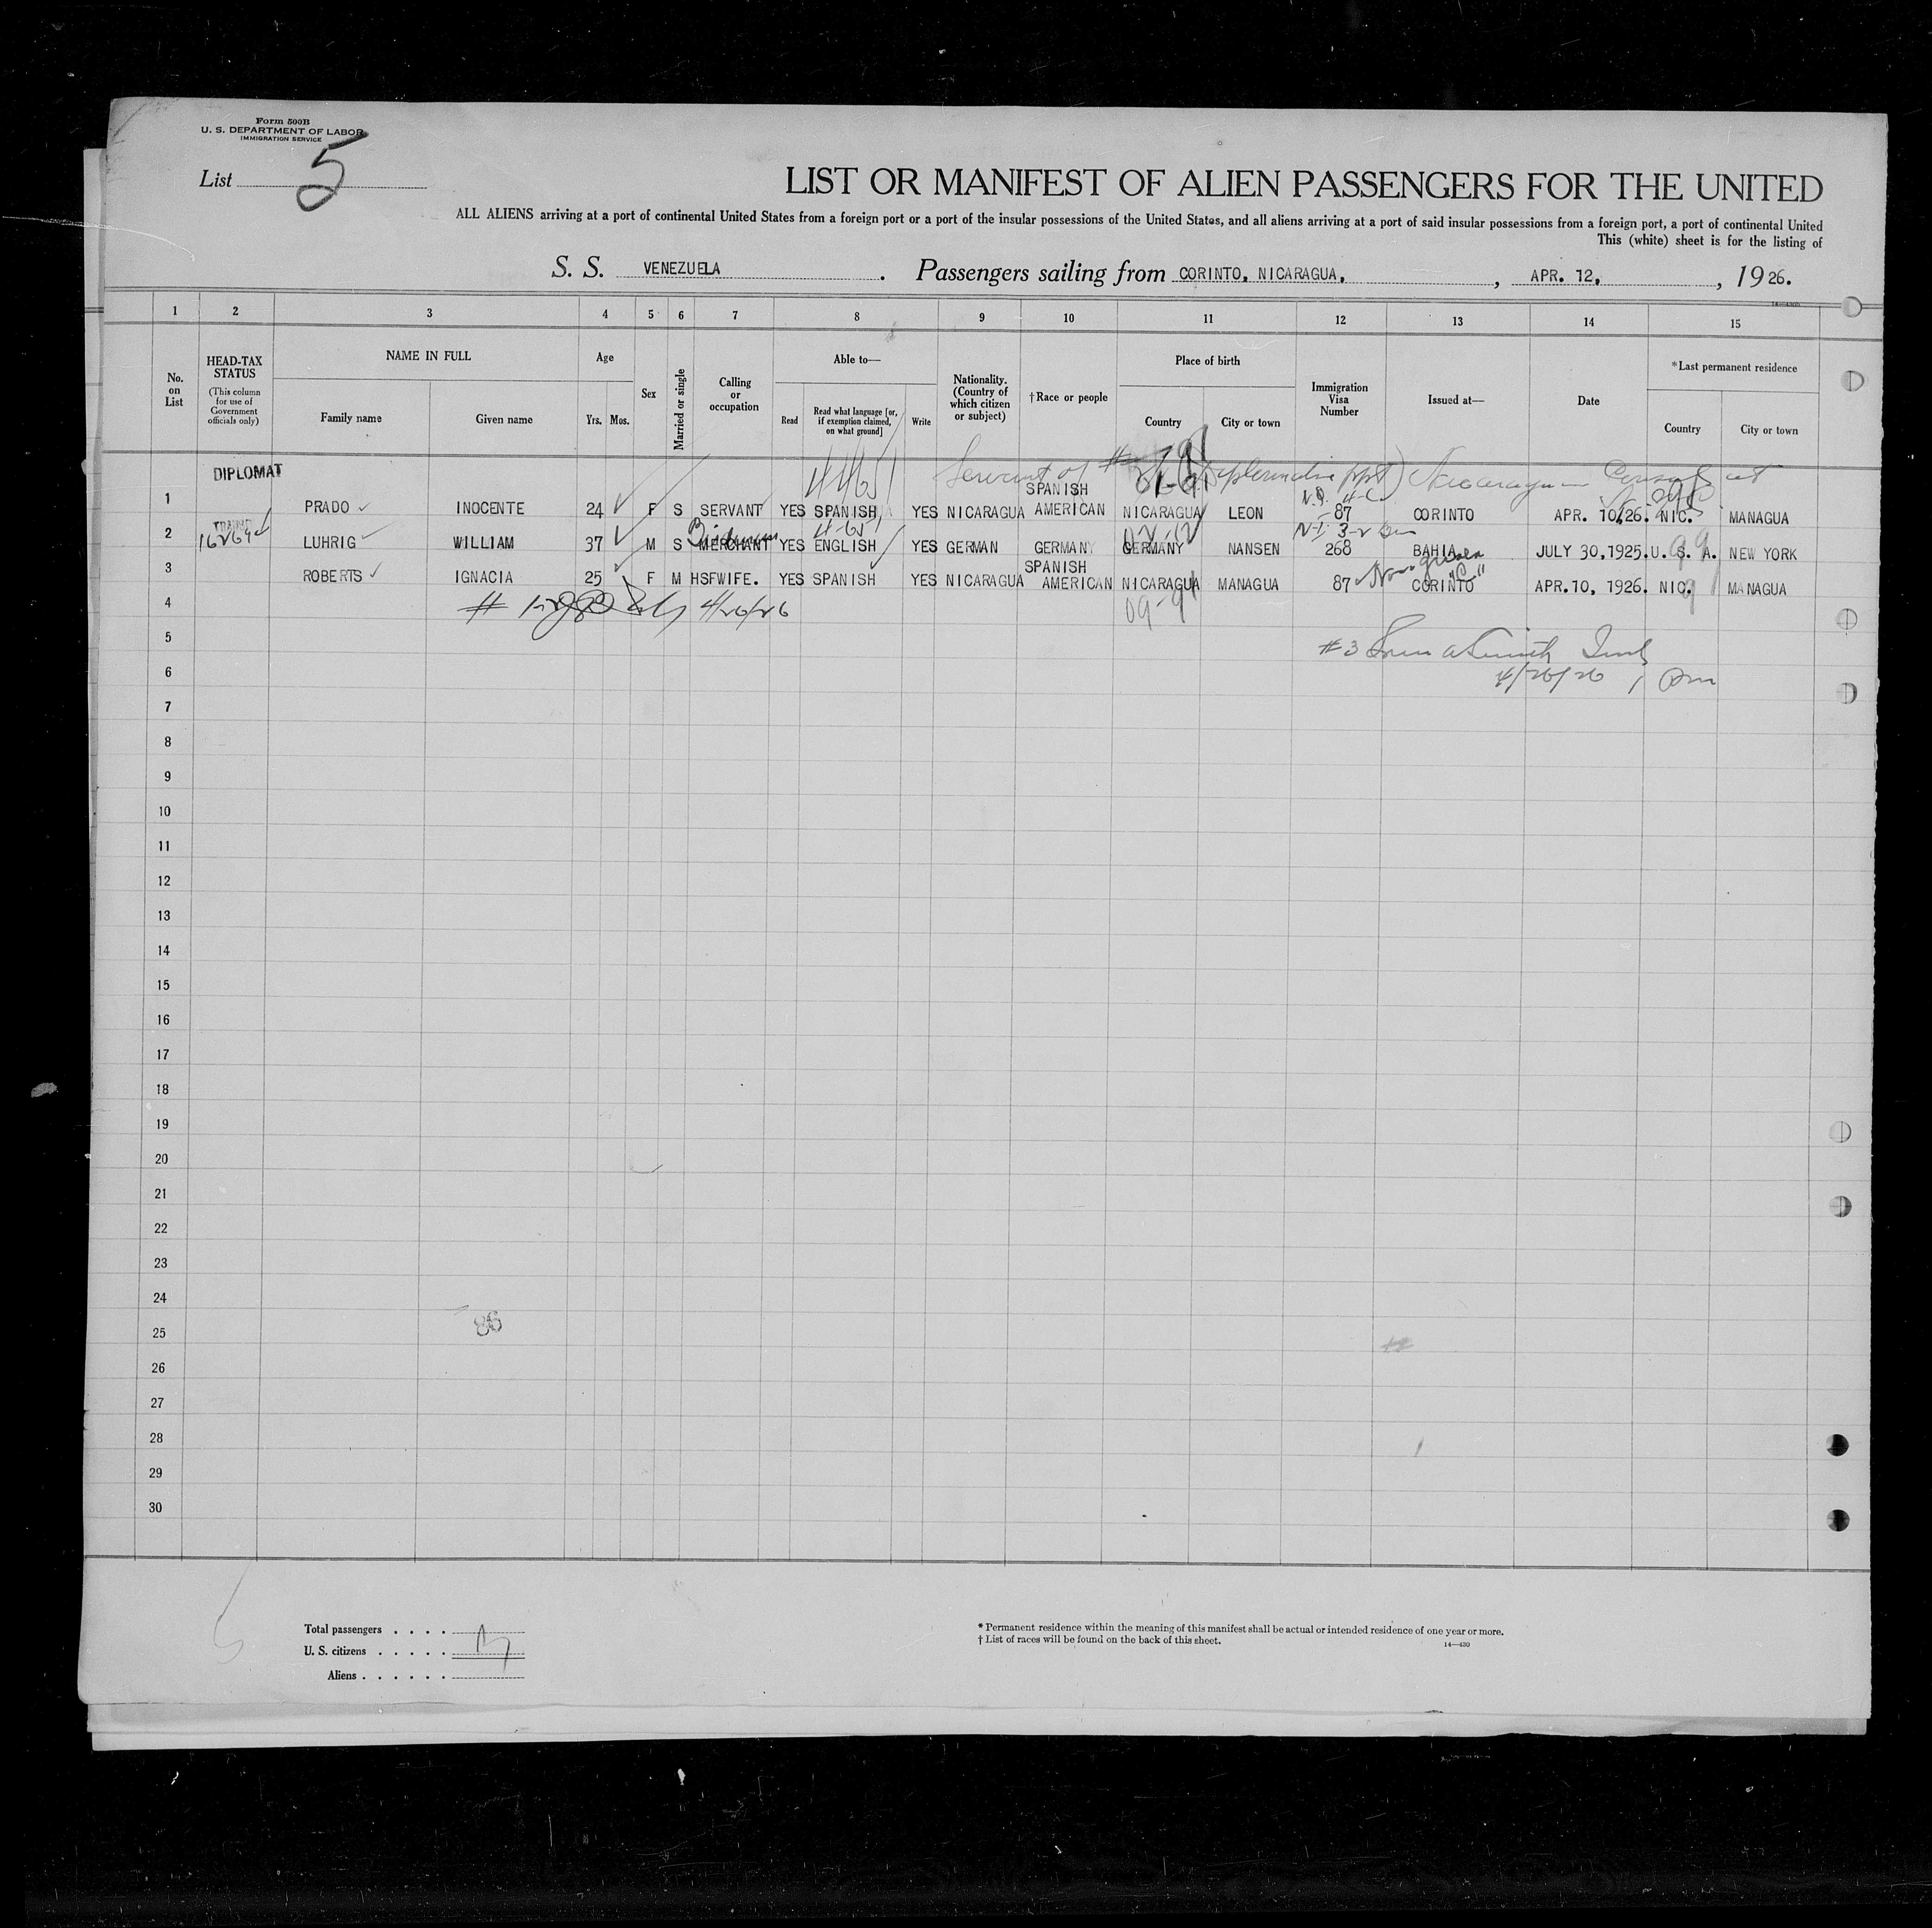 Form 500B
U. S. DEPARTMENT OF LABOR
IMMIGRATION SERVICE
List 5
LIST OR MANIFEST OF ALIEN PASSENGERS FOR THE UNITED
ALL ALIENS arriving at a port of continental United States from a foreign port or a port of the insular possessions of the United States, and all aliens arriving at a port of said insular possessions from a foreign port, a port of continental United
This (white) sheet is for the listing of
S. S. VENEZUELA. Passengers sailing from CORINTO, NICARAGUA, , APR. 12, , 1926.
1 2 3 4 5 6 7 8 9 10 11 12 13 14 15
No. on List
HEAD-TAX STATUS
(This column for use of Government officials only)
NAME IN FULL
Family name Given name
Age
Yrs. Mos.
Sex
Married or single
Calling or occupation
Able to—
Read Read what language [or, if exemption claimed, on what ground] Write
Nationality. (Country of which citizen or subject)
†Race or people
Place of birth
Country City or town
Immigration Visa Number
Issued at—
Date
*Last permanent residence
Country City or town
DIPLOMAT
Servant of
1 PRADO INOCENTE 24 F S SERVANT YES SPANISH YES NICARAGUA SPANISH AMERICAN NICARAGUA LEON 87 CORINTO APR. 10,26. NIC. MANAGUA
2 LUHRIG WILLIAM 37 M S MERCHANT YES ENGLISH YES GERMAN GERMANY GERMANY NANSEN 268 BAHIA JULY 30,1925. U. S. A. NEW YORK
3 ROBERTS IGNACIA 25 F M HSFWIFE. YES SPANISH YES NICARAGUA SPANISH AMERICAN NICARAGUA MANAGUA 87 CORINTO APR.10, 1926. NIC. MANAGUA
4 4/26/26 09-9
5 #3
6 4/26/26
7
8
9
10
11
12
13
14
15
16
17
18
19
20
21
22
23
24
25
86
26
27
28
29
30
Total passengers . . . .
U. S. citizens . . . . .
Aliens . . . . . .
* Permanent residence within the meaning of this manifest shall be actual or intended residence of one year or more.
† List of races will be found on the back of this sheet.
14—430